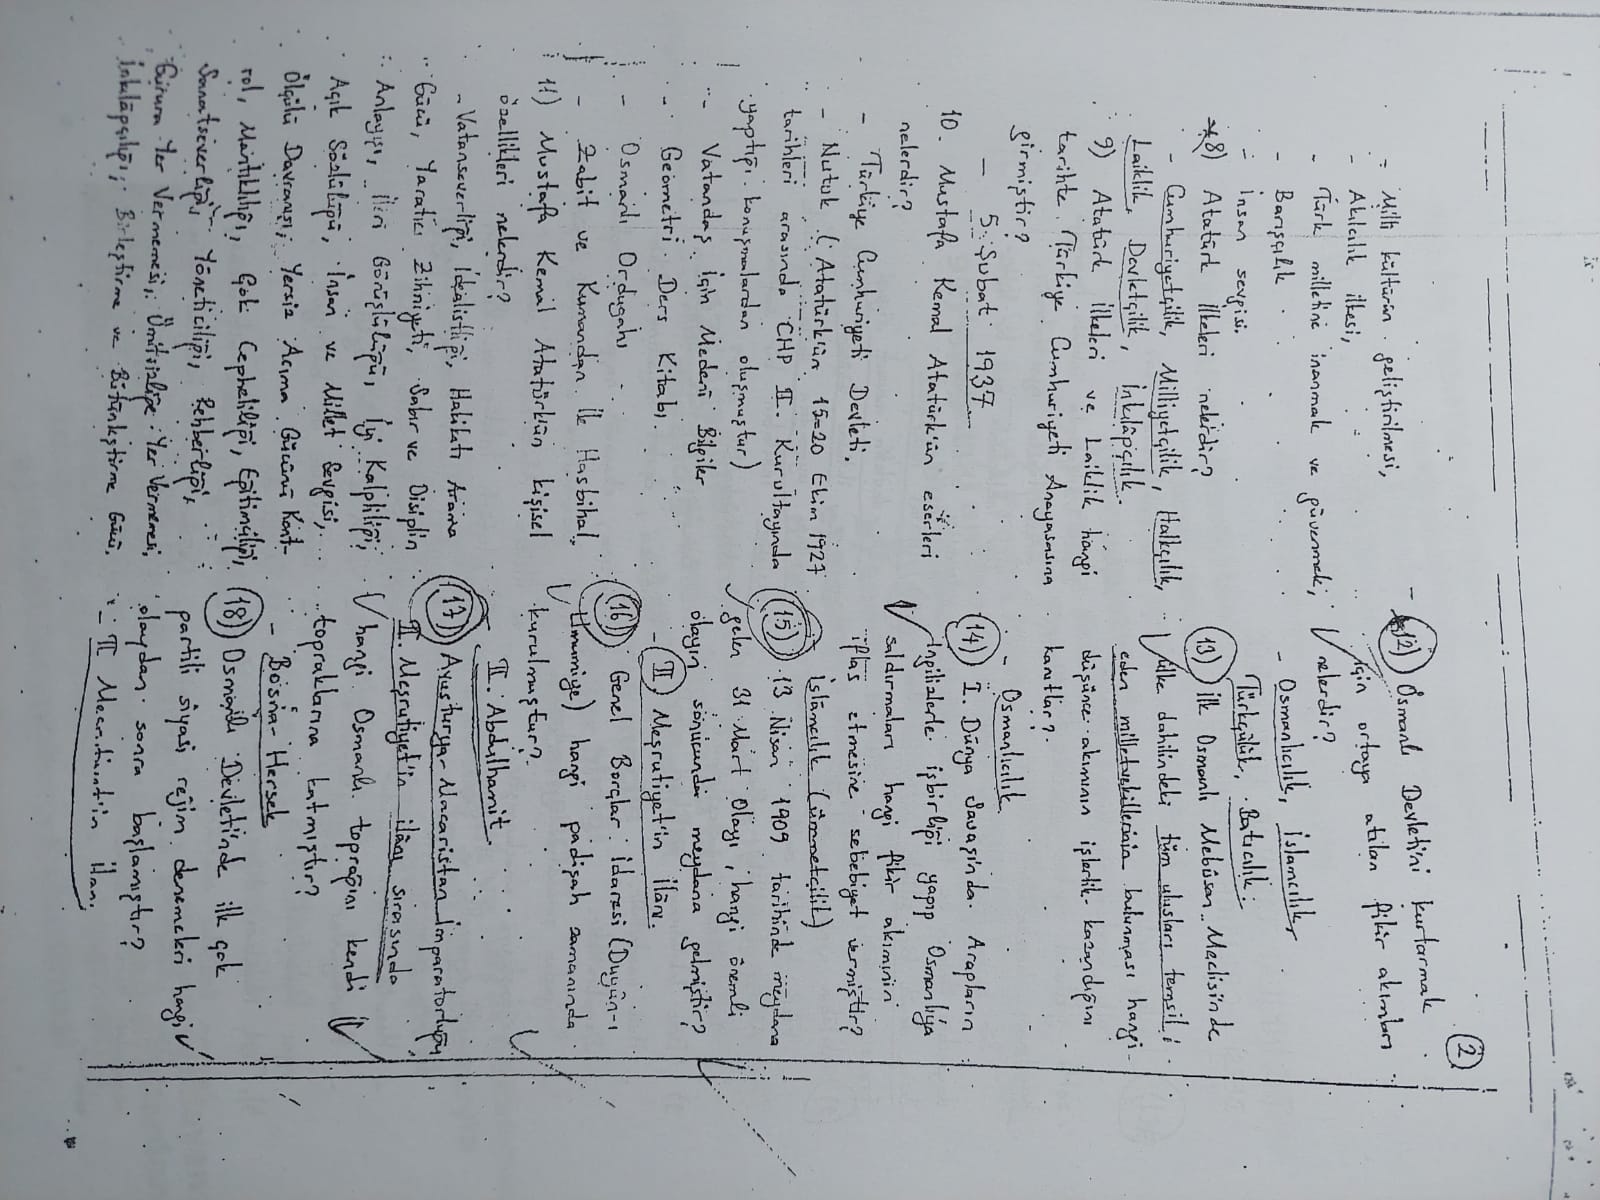 2
- Milli kültürün geliştirilmesi,
- Akılcılık ilkesi,
- Türk milletine inanmak ve güvenmek,
- Barışçılık
- İnsan sevgisi.
8) Atatürk İlkeleri nelerdir?
- Cumhuriyetçilik, Milliyetçilik, Halkçılık,
Laiklik, Devletçilik, İnkılâpçılık.
9) Atatürk İlkeleri ve Laiklik hangi
tarihte Türkiye Cumhuriyeti Anayasasına
girmiştir?
- 5 Şubat 1937
10. Mustafa Kemal Atatürk'ün eserleri
nelerdir?
- Türkiye Cumhuriyeti Devleti.
- Nutuk (Atatürk'ün 15-20 Ekim 1927
tarihleri arasında CHP II. Kurultayında
yaptığı konuşmalardan oluşmuştur)
- Vatandaş İçin Medenî Bilgiler
- Geometri Ders Kitabı.
- Osmanlı Ordugahı
- Zabit ve Kumandan İle Hasbihal.
11) Mustafa Kemal Atatürk'ün kişisel
özellikleri nelerdir?
- Vatanseverliği, İdealistliği, Hakikatı Arama
Gücü, Yaratıcı Zihniyeti, Sabır ve Disiplin
Anlayışı, İleri Görüşlülüğü, İyi Kalpliliği,
Açık Sözlülüğü, İnsan ve Millet Sevgisi,
Ölçülü Davranışı, Yersiz Acıma Gücünü Kont-
rol, Mantıklılığı, Çok Cepheliliği, Eğitimciliği,
Sanatseverliği, Yöneticiliği, Rehberliği,
Gurura Yer Vermemesi, Ümitsizliğe Yer Vermemesi,
İnkılâpçılığı, Birleştirme ve Bütünleştirme Gücü.
12) Osmanlı Devleti'ni kurtarmak
için ortaya atılan fikir akımları
nelerdir?
- Osmanlıcılık, İslamcılık,
Türkçülük, Batıcılık.
13) İlk Osmanlı Mebûsan Meclisi'nde
ülke dahilindeki tüm ulusları temsil
eden milletvekillerinin bulunması hangi
düşünce akımının işlerlik kazandığını
kanıtlar?
- Osmanlıcılık
14) I. Dünya Savaşı'nda Arapların
İngilizlerle işbirliği yapıp Osmanlıya
saldırmaları hangi fikir akımının
iflas etmesine sebebiyet vermiştir?
- İslâmcılık (ümmetçilik)
15) 13 Nisan 1909 tarihinde meydana
gelen 31 Mart Olayı, hangi önemli
olayın sonucunda meydana gelmiştir?
- II Meşrutiyet'in İlânı.
16) Genel Borçlar İdaresi (Duyûn-ı
Umumiye) hangi padişah zamanında
kurulmuştur?
II. Abdulhamit.
17) Avusturya-Macaristan İmparatorluğu
II. Meşrutiyet'in ilânı sırasında
hangi Osmanlı toprağını kendi
topraklarına katmıştır?
- Bosna-Hersek
18) Osmanlı Devleti'nde ilk çok
partili siyasi rejim denemeleri hangi
olaydan sonra başlamıştır?
- II Meşrutiyet'in İlanı.